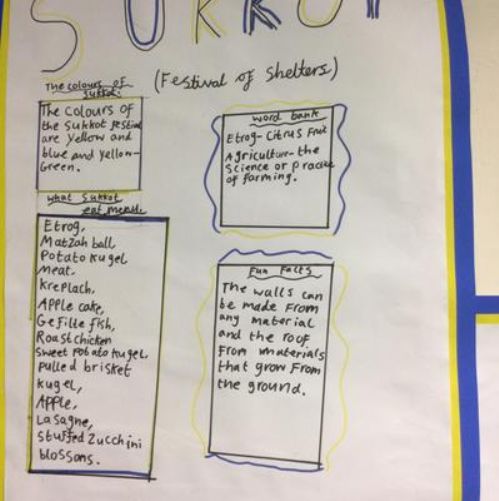 SUKKOT
(Festival of Shelters)
The colours of
Sukkot:
The colours of
the Sukkot festival
are yellow and
blue and yellow-
Green.
what Sukkot
eat meals:
Etrog,
Matzah ball
Potato kugel
meat.
kreplach,
Apple cake,
Gefilte fish,
Roast chicken
sweet potato kugel
pulled brisket
kugel,
Apple,
Lasagne,
stuffed zucchini
blossons.
word bank
Etrog- Citrus Fruit
Agriculture- the
Science or practice
of farming.
Fun Facts
The walls can
be made from
any material
and the roof
from materials
that grow from
the ground.